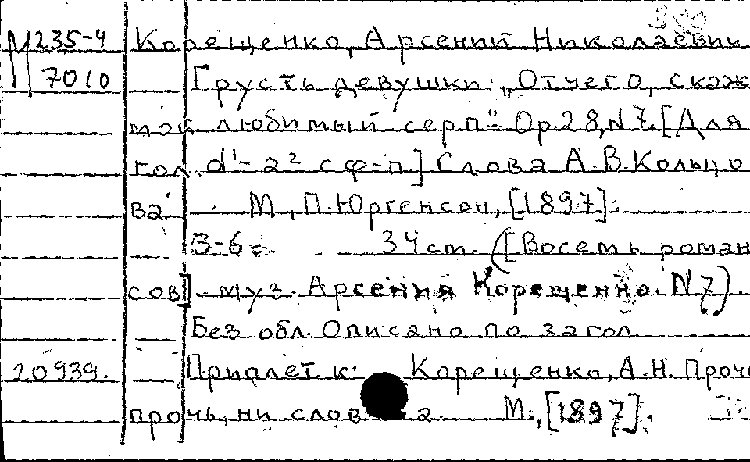 М 235-4 Корещенко, Арсений Николаевич
7010 Грусть девушки: „Отчего, скаж
мой любимый серп" Op.28, N7. [Для
гол. d¹-a² с ф-п] Слова А.В. Кольцо
ва. М., П. Юргенсон, [1897].
3-6с 34 cm. ([Восемь роман
сов] муз. Арсения Корещенко. N7)
Без обл. Описано по загол.
20939. Приплет. к: Корещенко, А.Н. Прочь
прочь, ни слова М., [1897].